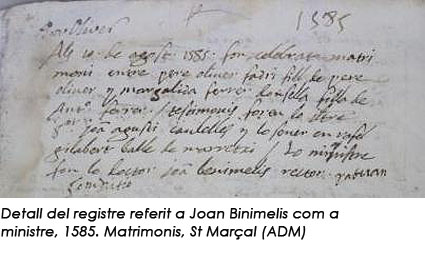 1585
Als 10 de agost 1585 fon celebrat matri
moni entre pere oliver fadri fill de pere
oliver y margalida ferrer donsella filla de
Ant. ferrer / testimonis foren lo
Joā agusti y lo
batle de marratxi / Lo ministre
fon lo Rector Joā benimelis rector
Detall del registre referit a Joan Binimelis com a
ministre, 1585. Matrimonis, St Marçal (ADM)